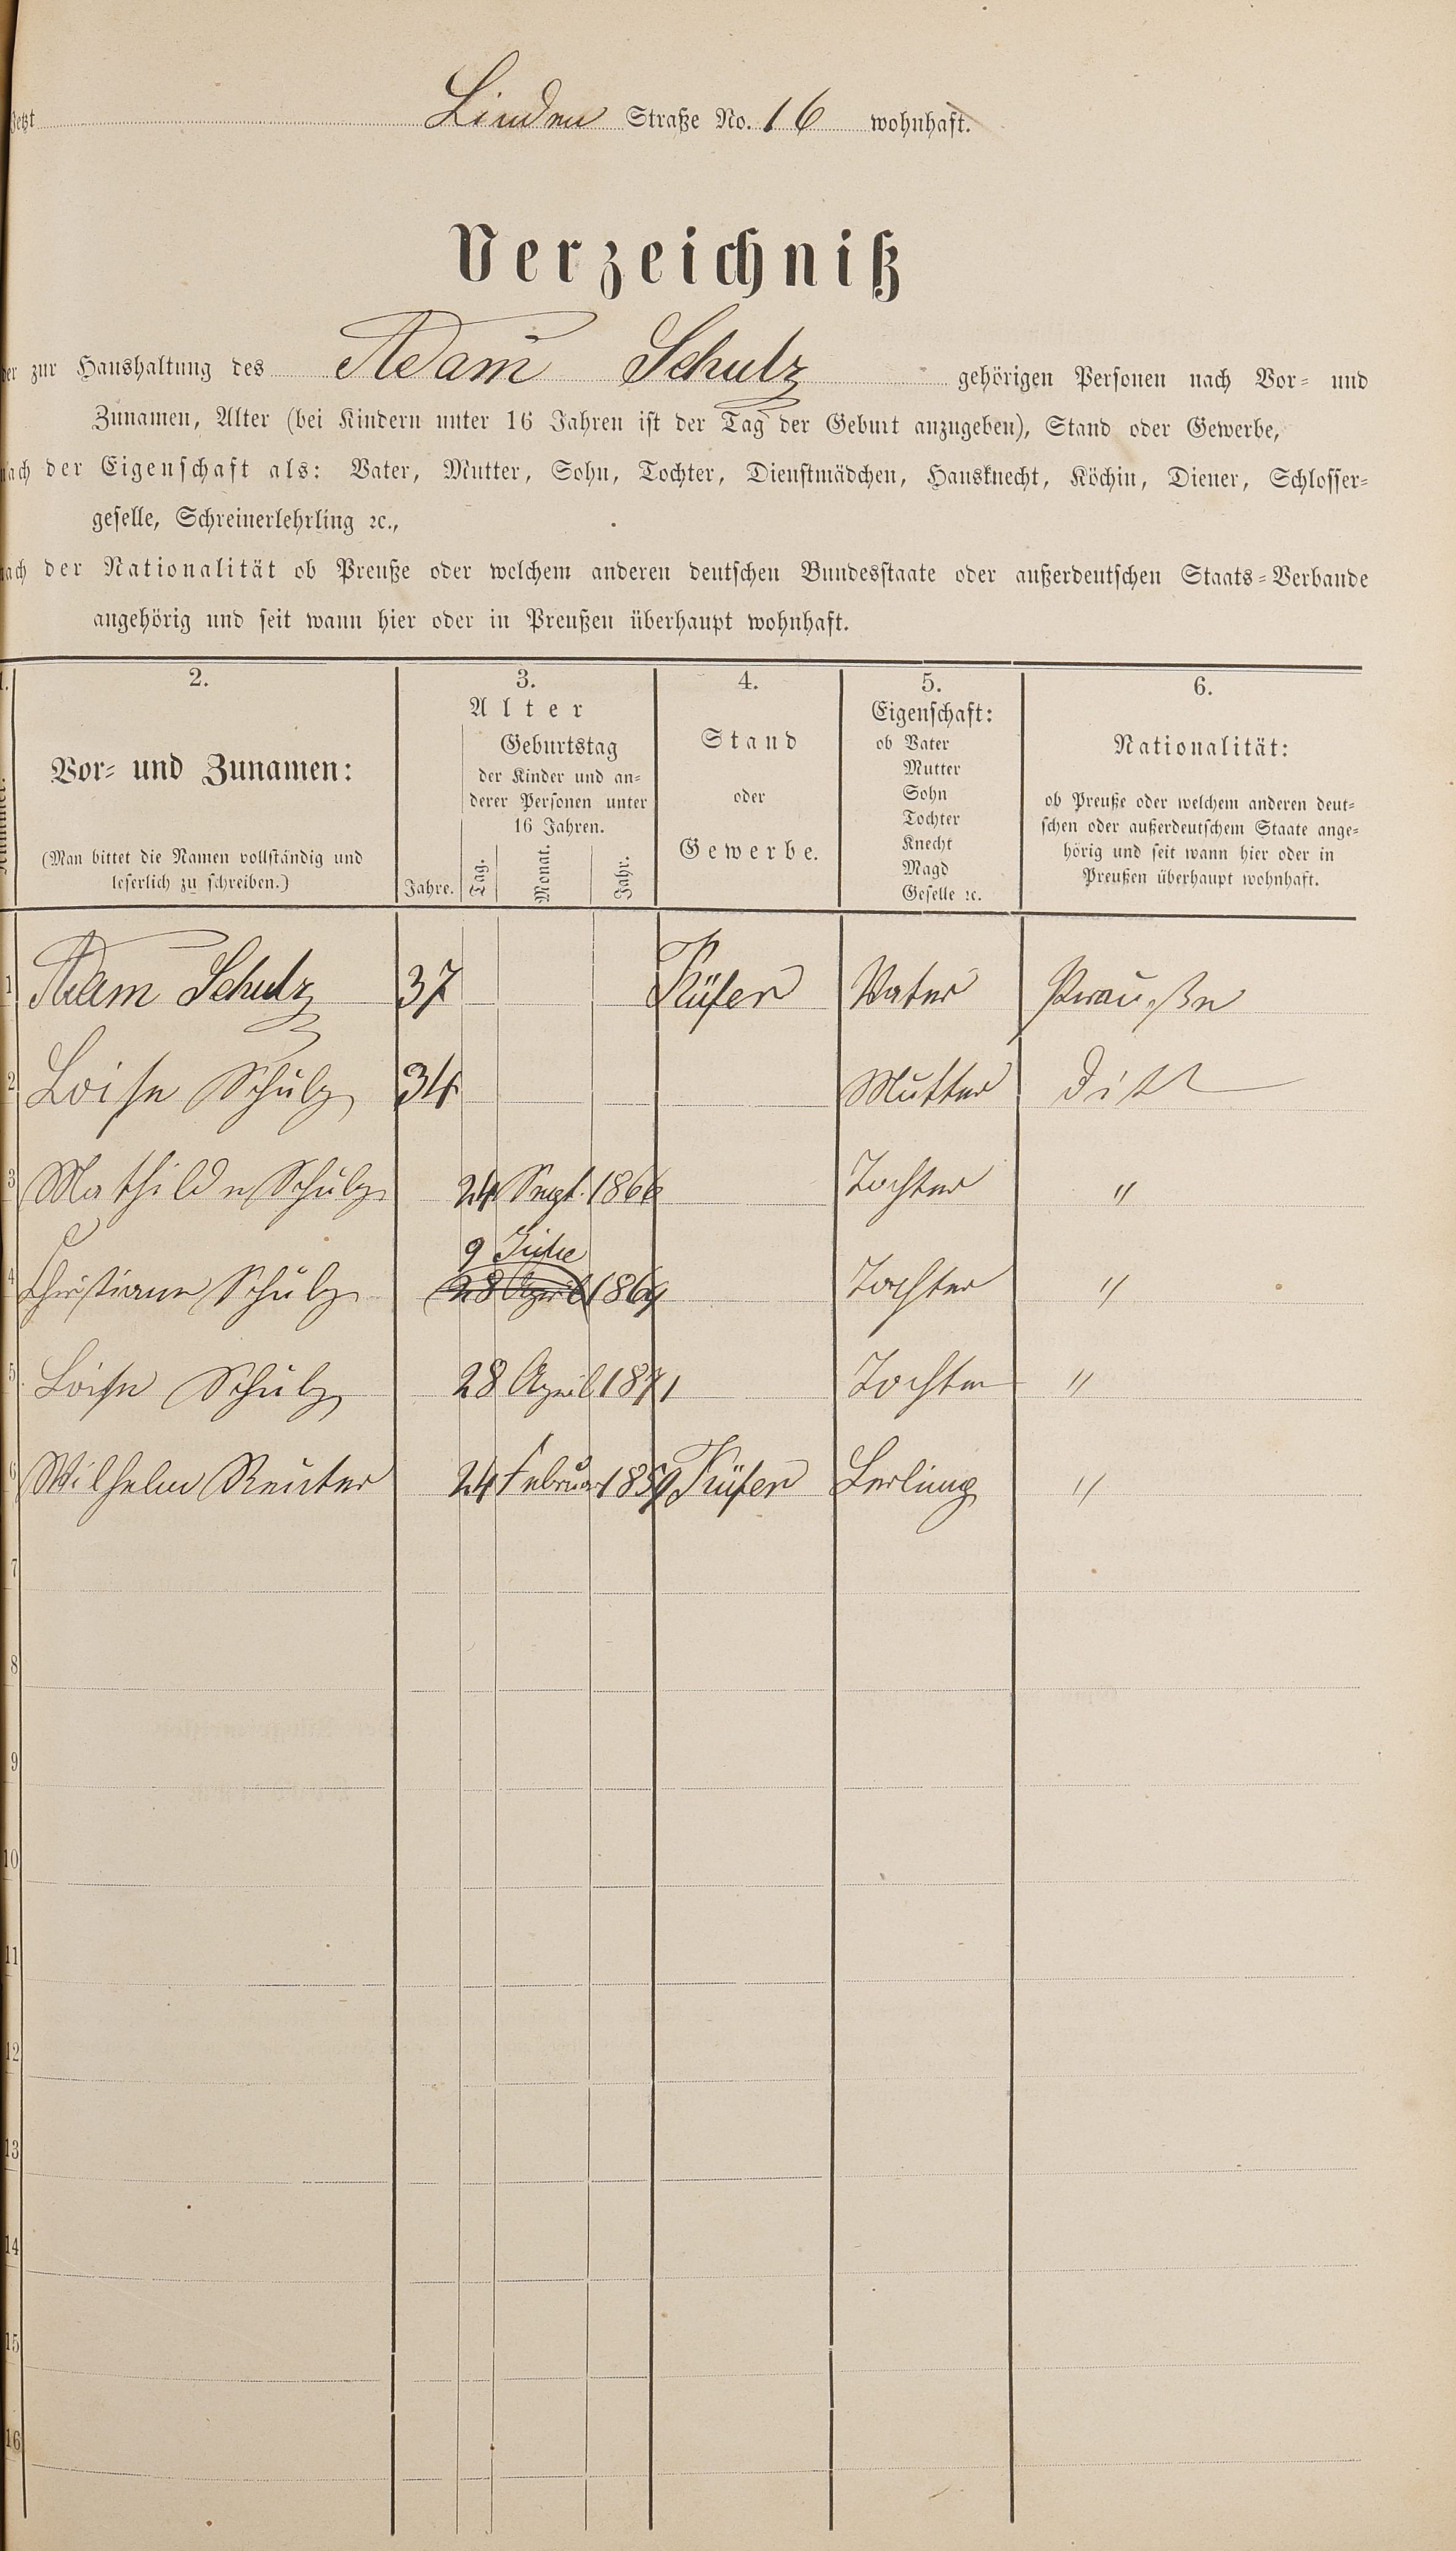 Jetzt Linden Straße No. 16 wohnhaft.
Verzeichniß
der zur Haushaltung des Adam Schulz gehörigen Personen nach Vor- und
Zunamen, Alter (bei Kindern unter 16 Jahren ist der Tag der Geburt anzugeben), Stand oder Gewerbe,
nach der Eigenschaft als: Vater, Mutter, Sohn, Tochter, Dienstmädchen, Hausknecht, Köchin, Diener, Schlosser-
geselle, Schreinerlehrling ꝛc.,
nach der Nationalität ob Preuße oder welchem anderen deutschen Bundesstaate oder außerdeutschen Staats-Verbande
angehörig und seit wann hier oder in Preußen überhaupt wohnhaft.
1. 2. 3. 4. 5. 6.
Vor- und Zunamen:
(Man bittet die Namen vollständig und
leserlich zu schreiben.)
Alter
Geburtstag
der Kinder und an-
derer Personen unter
16 Jahren.
Jahre. Tag. Monat. Jahr.
Stand
oder
Gewerbe.
Eigenschaft:
ob Vater
Mutter
Sohn
Tochter
Knecht
Magd
Geselle ꝛc.
Nationalität:
ob Preuße oder welchem anderen deut-
schen oder außerdeutschem Staate ange-
hörig und seit wann hier oder in
Preußen überhaupt wohnhaft.
1 Adam Schulz 37 Küfer Vater Preuße
2 Loise Schulz 34 Mutter
3 Mathilde Schulz 24 Sept. 1866 Tochter "
9
4 Christiane Schulz 28 April 1869 Tochter "
5 Loise Schulz 28 April 1871 Tochter "
6 Wilhelm Reuter 24 Februar 1859 Küfer Lerling "
7
8
9
10
11
12
13
14
15
16